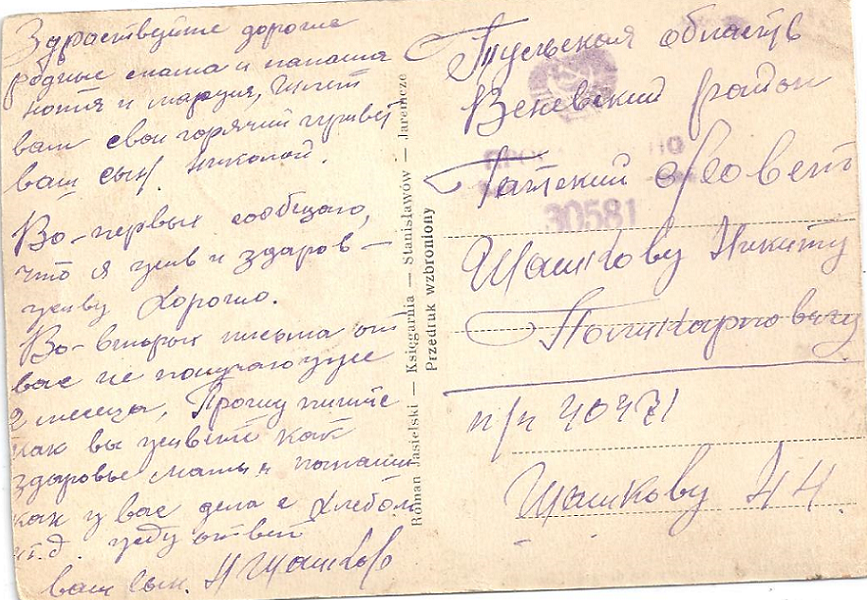 Здраствуйте дорогие
родные мама и папаша
Шлет
вам свой горячий привет
ваш сын. Николай.
Во-первых сообщаю,
что я жив и здаров –
живу Хорошо.
Во-вторых письма от
вас не получаю уже
2 месеца, Прошу пишите
как вы живете как
здоровье мамы и папаши
как у вас дела с Хлебом
и т.д. жду ответ
ваш сын. Н Шашков
Roman Jasielski — Księgarnia — Stanisławów — Jaremcze
Przedruk wzbroniony
Тульская область
Веневский район
с/совет
30581
Шашкову Никиту
Поликарповичу
п/п 40471
Шашкову